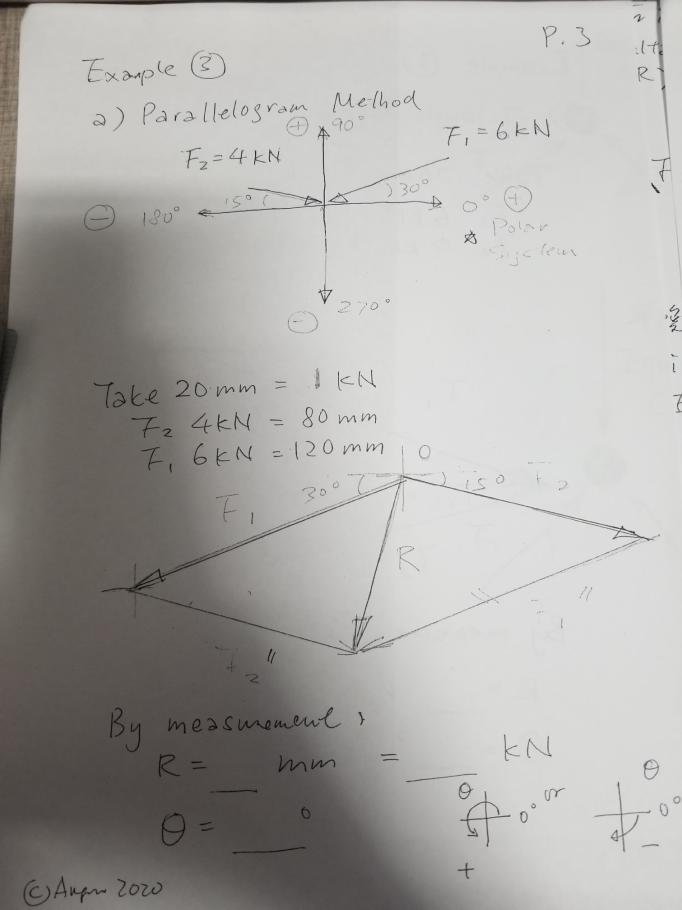 P. 3
Example ③
a) Parallelogram Method
⊕ 90°
F₁ = 6 kN
F₂ = 4 kN
15° 30°
⊖ 180° 0° ⊕
☆ Polar
System
270°
⊖
Take 20 mm = 1 kN
F₂ 4 kN = 80 mm
F₁ 6 kN = 120 mm
O
30° 15° F₂
F₁
R
F₁ "
F₂ "
By measurement,
R = __ mm = __ kN
θ = __ °
θ 0° or θ 0°
+ −
© 2020